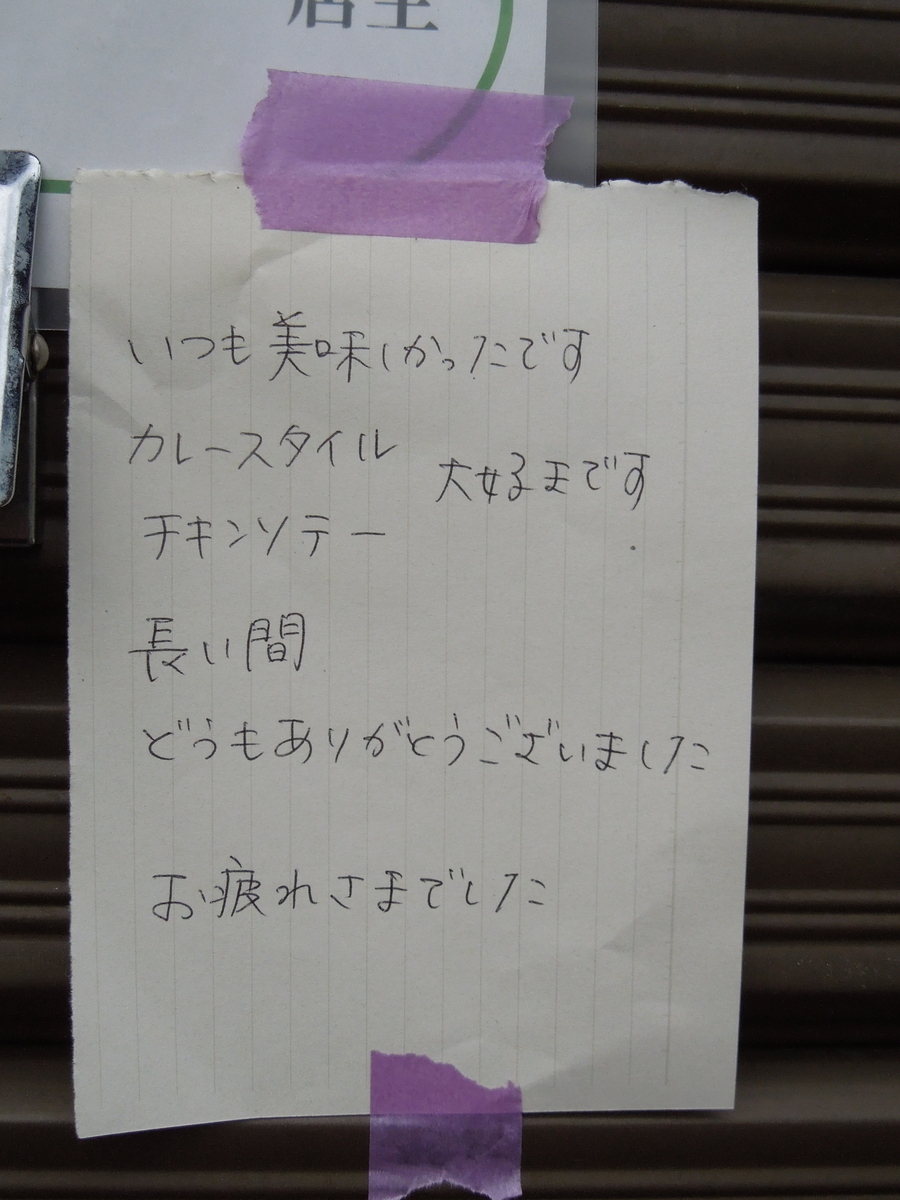 店主
いつも美味しかったです
カレースタイル
大好きです
チキンソテー
長い間
どうもありがとうございました
お疲れさまでした